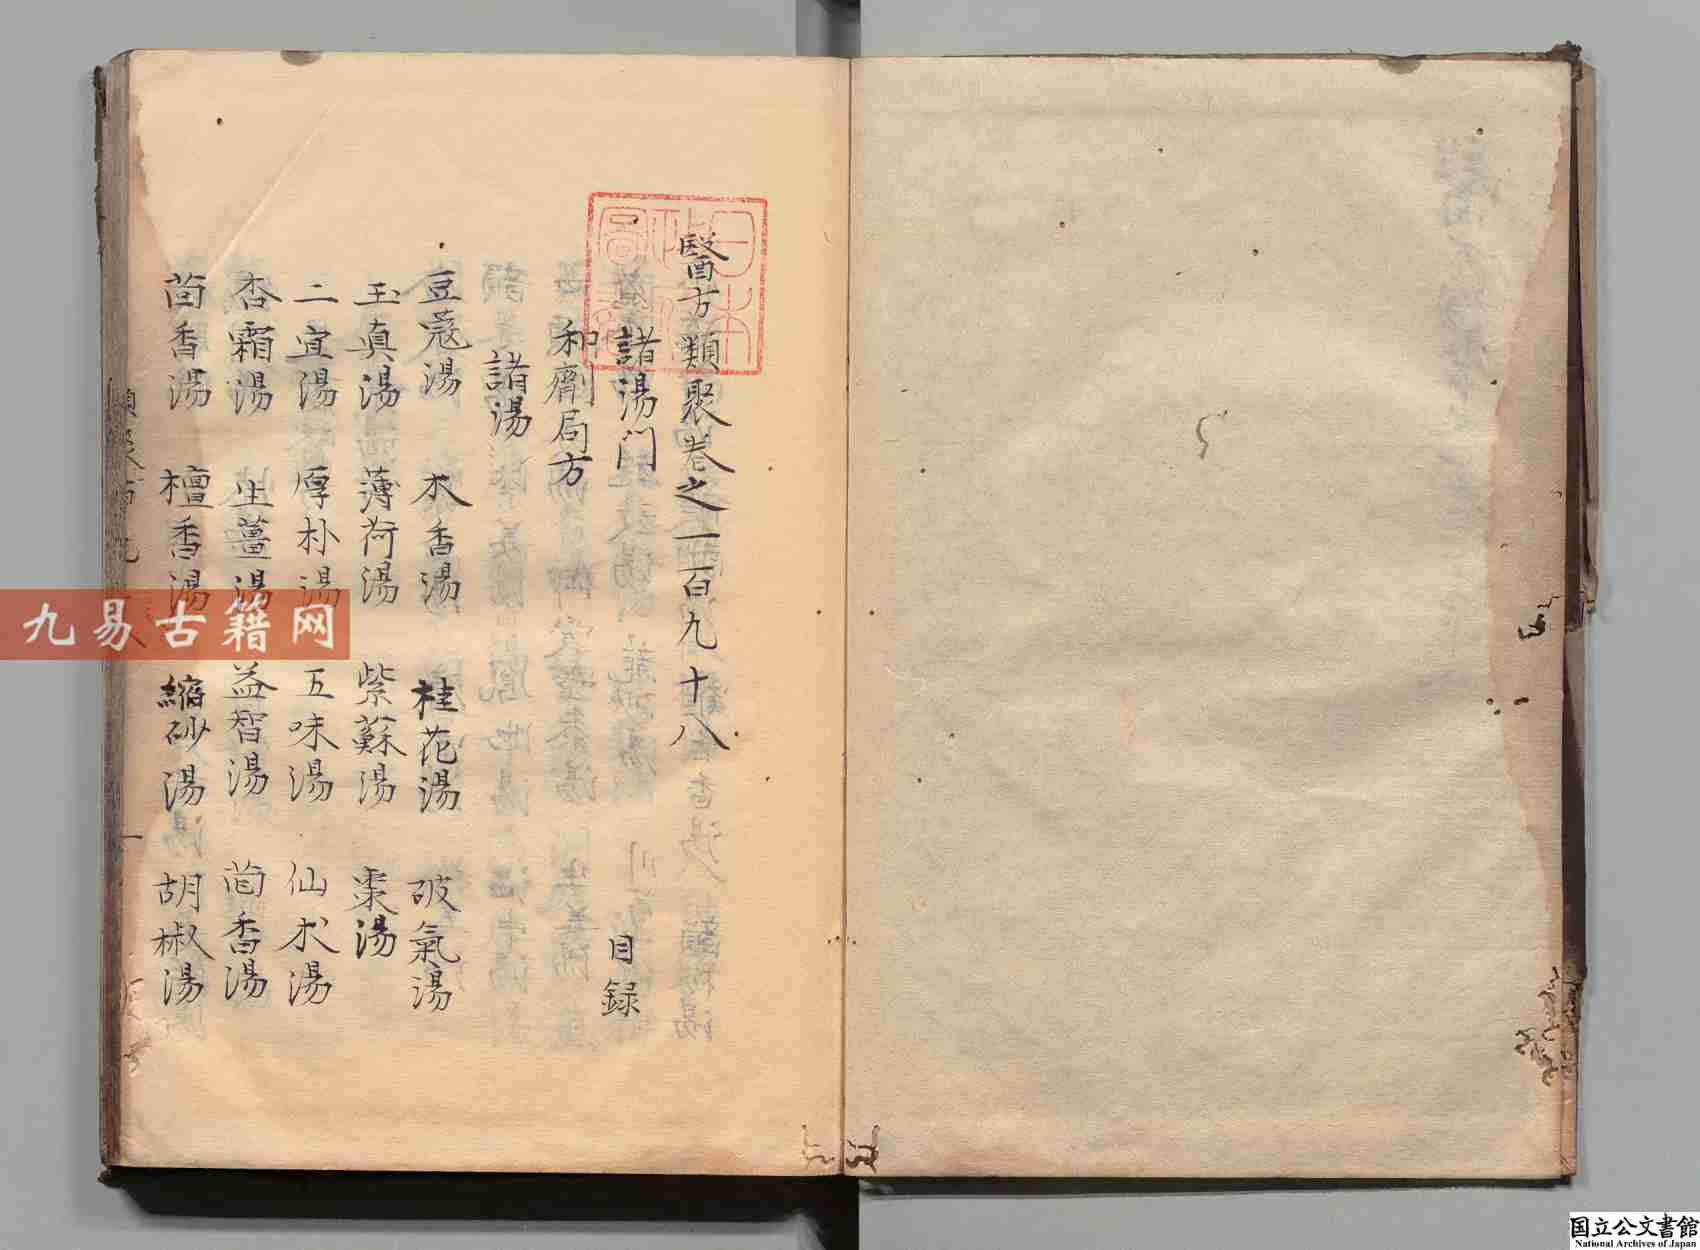 醫方類聚卷之一百九十八
諸湯門 目録
和劑局方
諸湯
豆蔻湯 木香湯 桂花湯 破氣湯
玉真湯 薄荷湯 紫蘇湯 棗湯
二宜湯 厚朴湯 五味湯 仙朮湯
杏霜湯 生薑湯 益智湯 茴香湯
茴香湯 檀香湯 縮砂湯 胡椒湯
九易古籍网
国立公文書館
National Archives of Japan